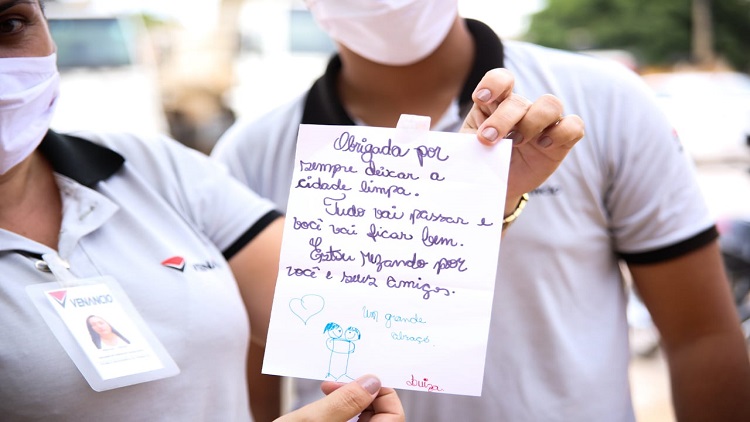 Obrigada por
sempre deixar a
cidade limpa.
Tudo vai passar e
você vai ficar bem.
Estou rezando por
você e seus amigos.
Um grande
abraço.
Luiza
VENANCIO